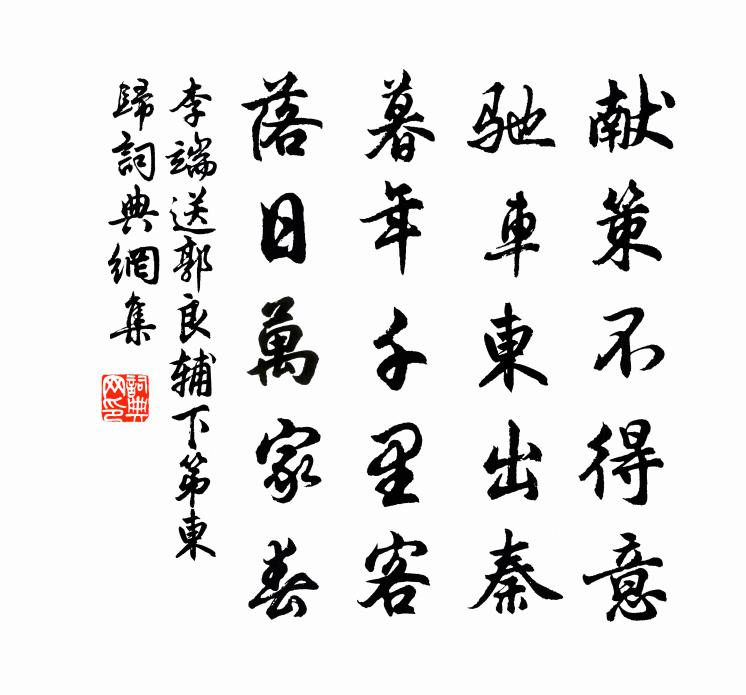 献策不得意
馳車東出秦
暮年千里客
落日萬家春
李端送郭良辅下第東
歸詞典網集
詞典网印